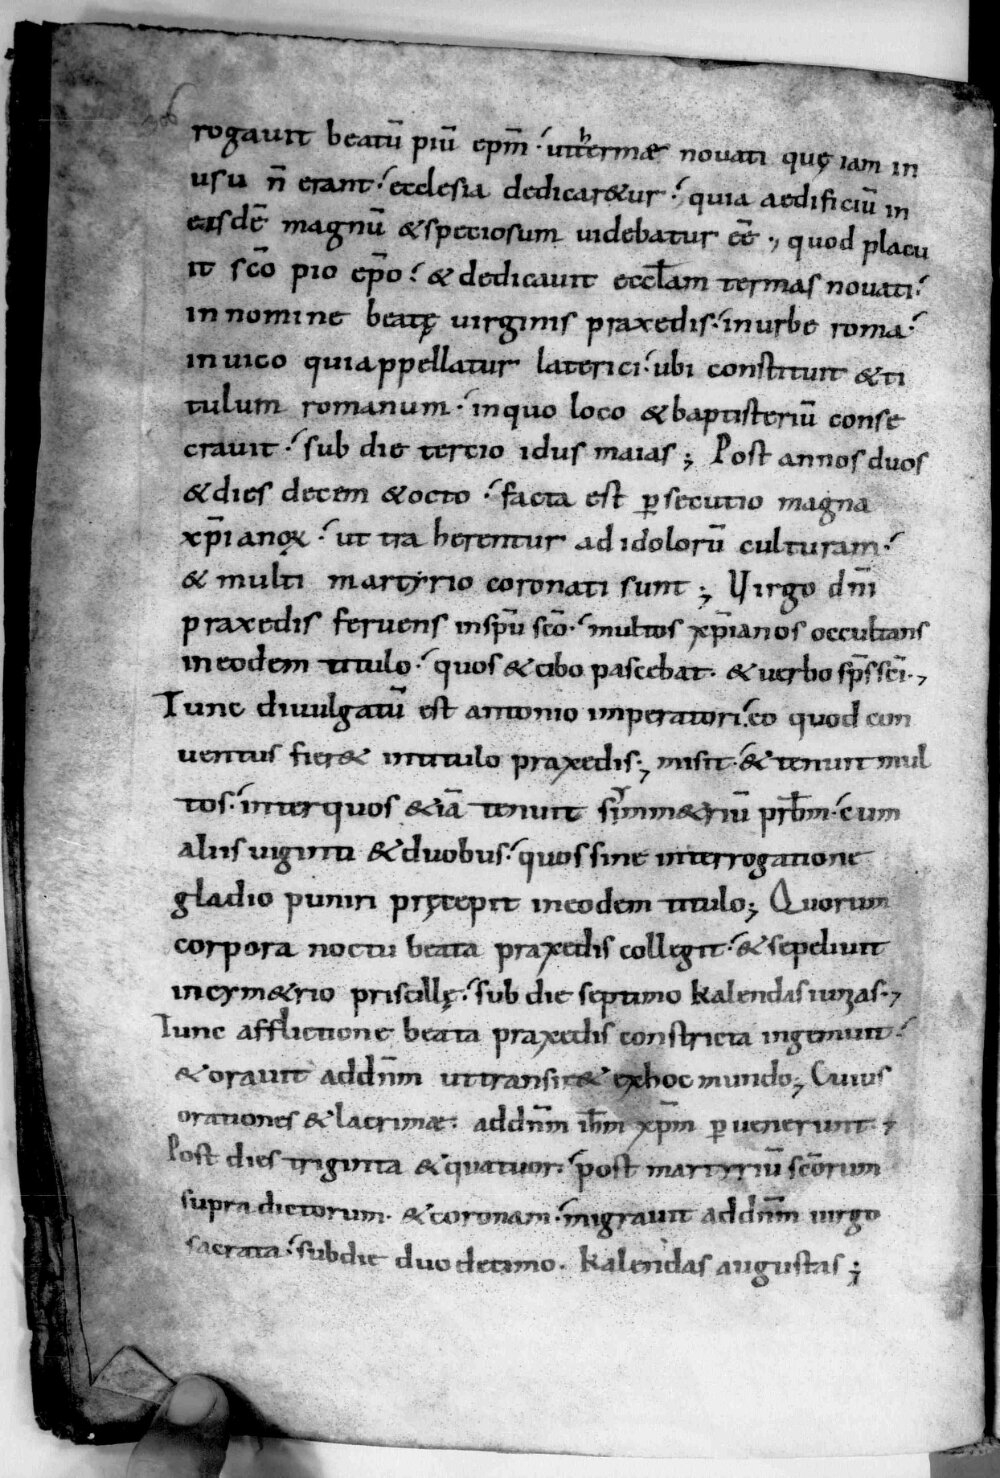 rogauit beatū piū ep̄m · ut thermæ nouati quę iam in
usu n̄ erant · ecclesia dedicar&ur · quia aedificiū in
easdē magnū & speciosum uidebatur eē ·, quod placu
it sc̄o pio ep̄o · & dedicauit eccl̄am termas nouati ·
in nomine beatę uirginis praxedis · in urbe roma ·
in uico qui appellatur laterici · ubi constituit & ti
tulum romanum · in quo loco & baptisteriū conse
crauit · sub die tercio idus maias ; Post annos duos
& dies decem & octo · facta est ꝑsecutio magna
xp̄ianoꝝ · ut traherentur ad idolorū culturam ·
& multi martyrio coronati sunt ; Uirgo dn̄i
praxedis feruens in sp̄u sc̄o · multos xp̄ianos occultans
in eodem titulo · quos & cibo pascebat · & uerbo sp̄s sc̄i ·,
Tunc diuulgatū est antonio imperatori · eo quod con
uentus fier& in titulo praxedis ·, misit · & tenuit mul
tos · inter quos & iā tenuit simm&riū prb̄m · cum
aliis uiginti & duobus · quos sine interrogatione
gladio puniri pręcepit in eodem titulo ; Quorum
corpora noctu beata praxedis collegit · & sepeliuit
in cym&rio priscillę · sub die septimo kalendas iunias ·,
Tunc afflictione beata praxedis constricta ingemuit ·
& orauit ad dn̄m ut transir& ex hoc mundo ; Cuius
orationes & lacrimæ · ad dn̄m ih̄m xp̄m ꝑuenerunt ·,
Post dies triginta & quatuor · post martyriū sc̄orum
supra dictorum · & coronam · migrauit ad dn̄m uirgo
sacrata · sub die duodecimo · kalendas augustas ;